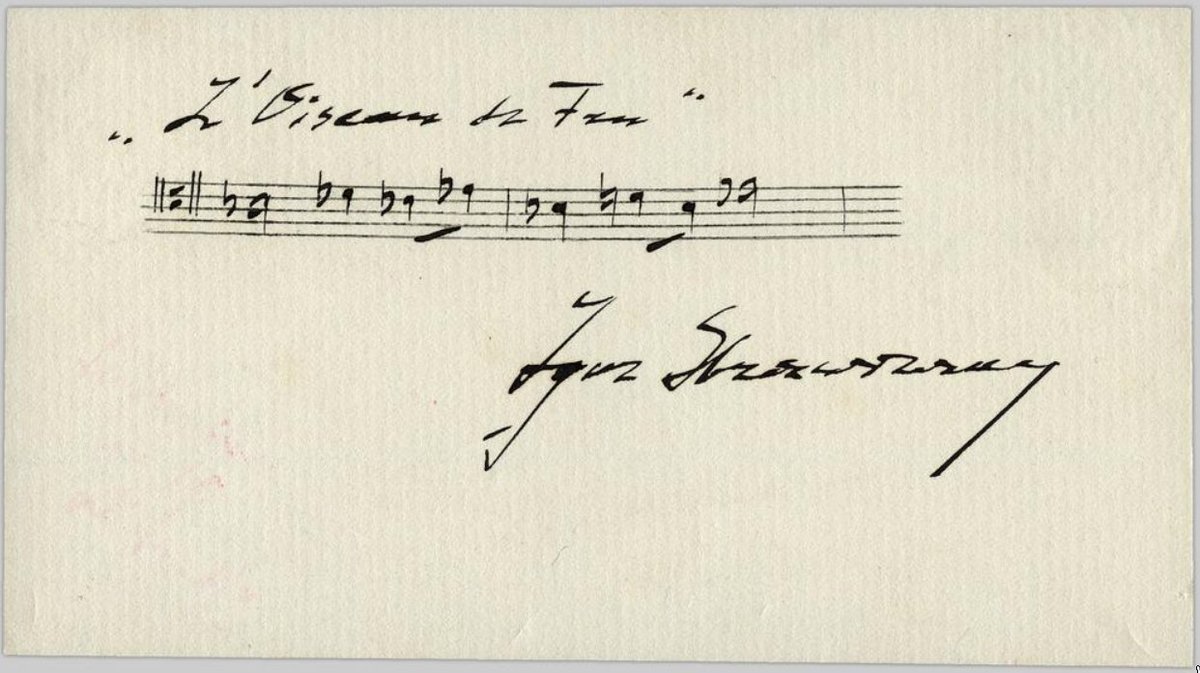 „L'Oiseau de Feu"
Igor Strawinsky